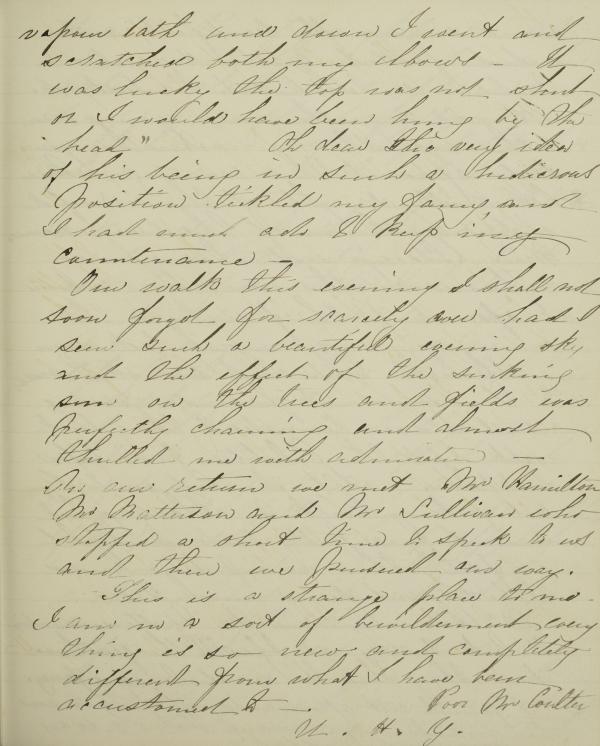 vapour bath and down I went and
scratched both my elbows - It
was lucky the top was not stout
or I would have been hung by the
head" Oh dear the very idea
of his being in such a ludicrous
position tickled my fancy and
I had much ado to keep in my
countenance -
Our walk this evening I shall not
soon forget for scarcely ever had I
seen such a beautiful evening sky
and the effect of the sinking
sun on the trees and fields was
perfectly charming and almost
thrilled me with admiration -
On our return we met Mr Hamilton
Mr Matterson and Mr Sullivan who
stopped a short time to speak to us
and then we pursued our way.
This is a strange place to me -
I am in a sort of bewilderment every
thing is so new and completely
different from what I have been
accustomed to - . Poor Mr Coulter
H. Y.